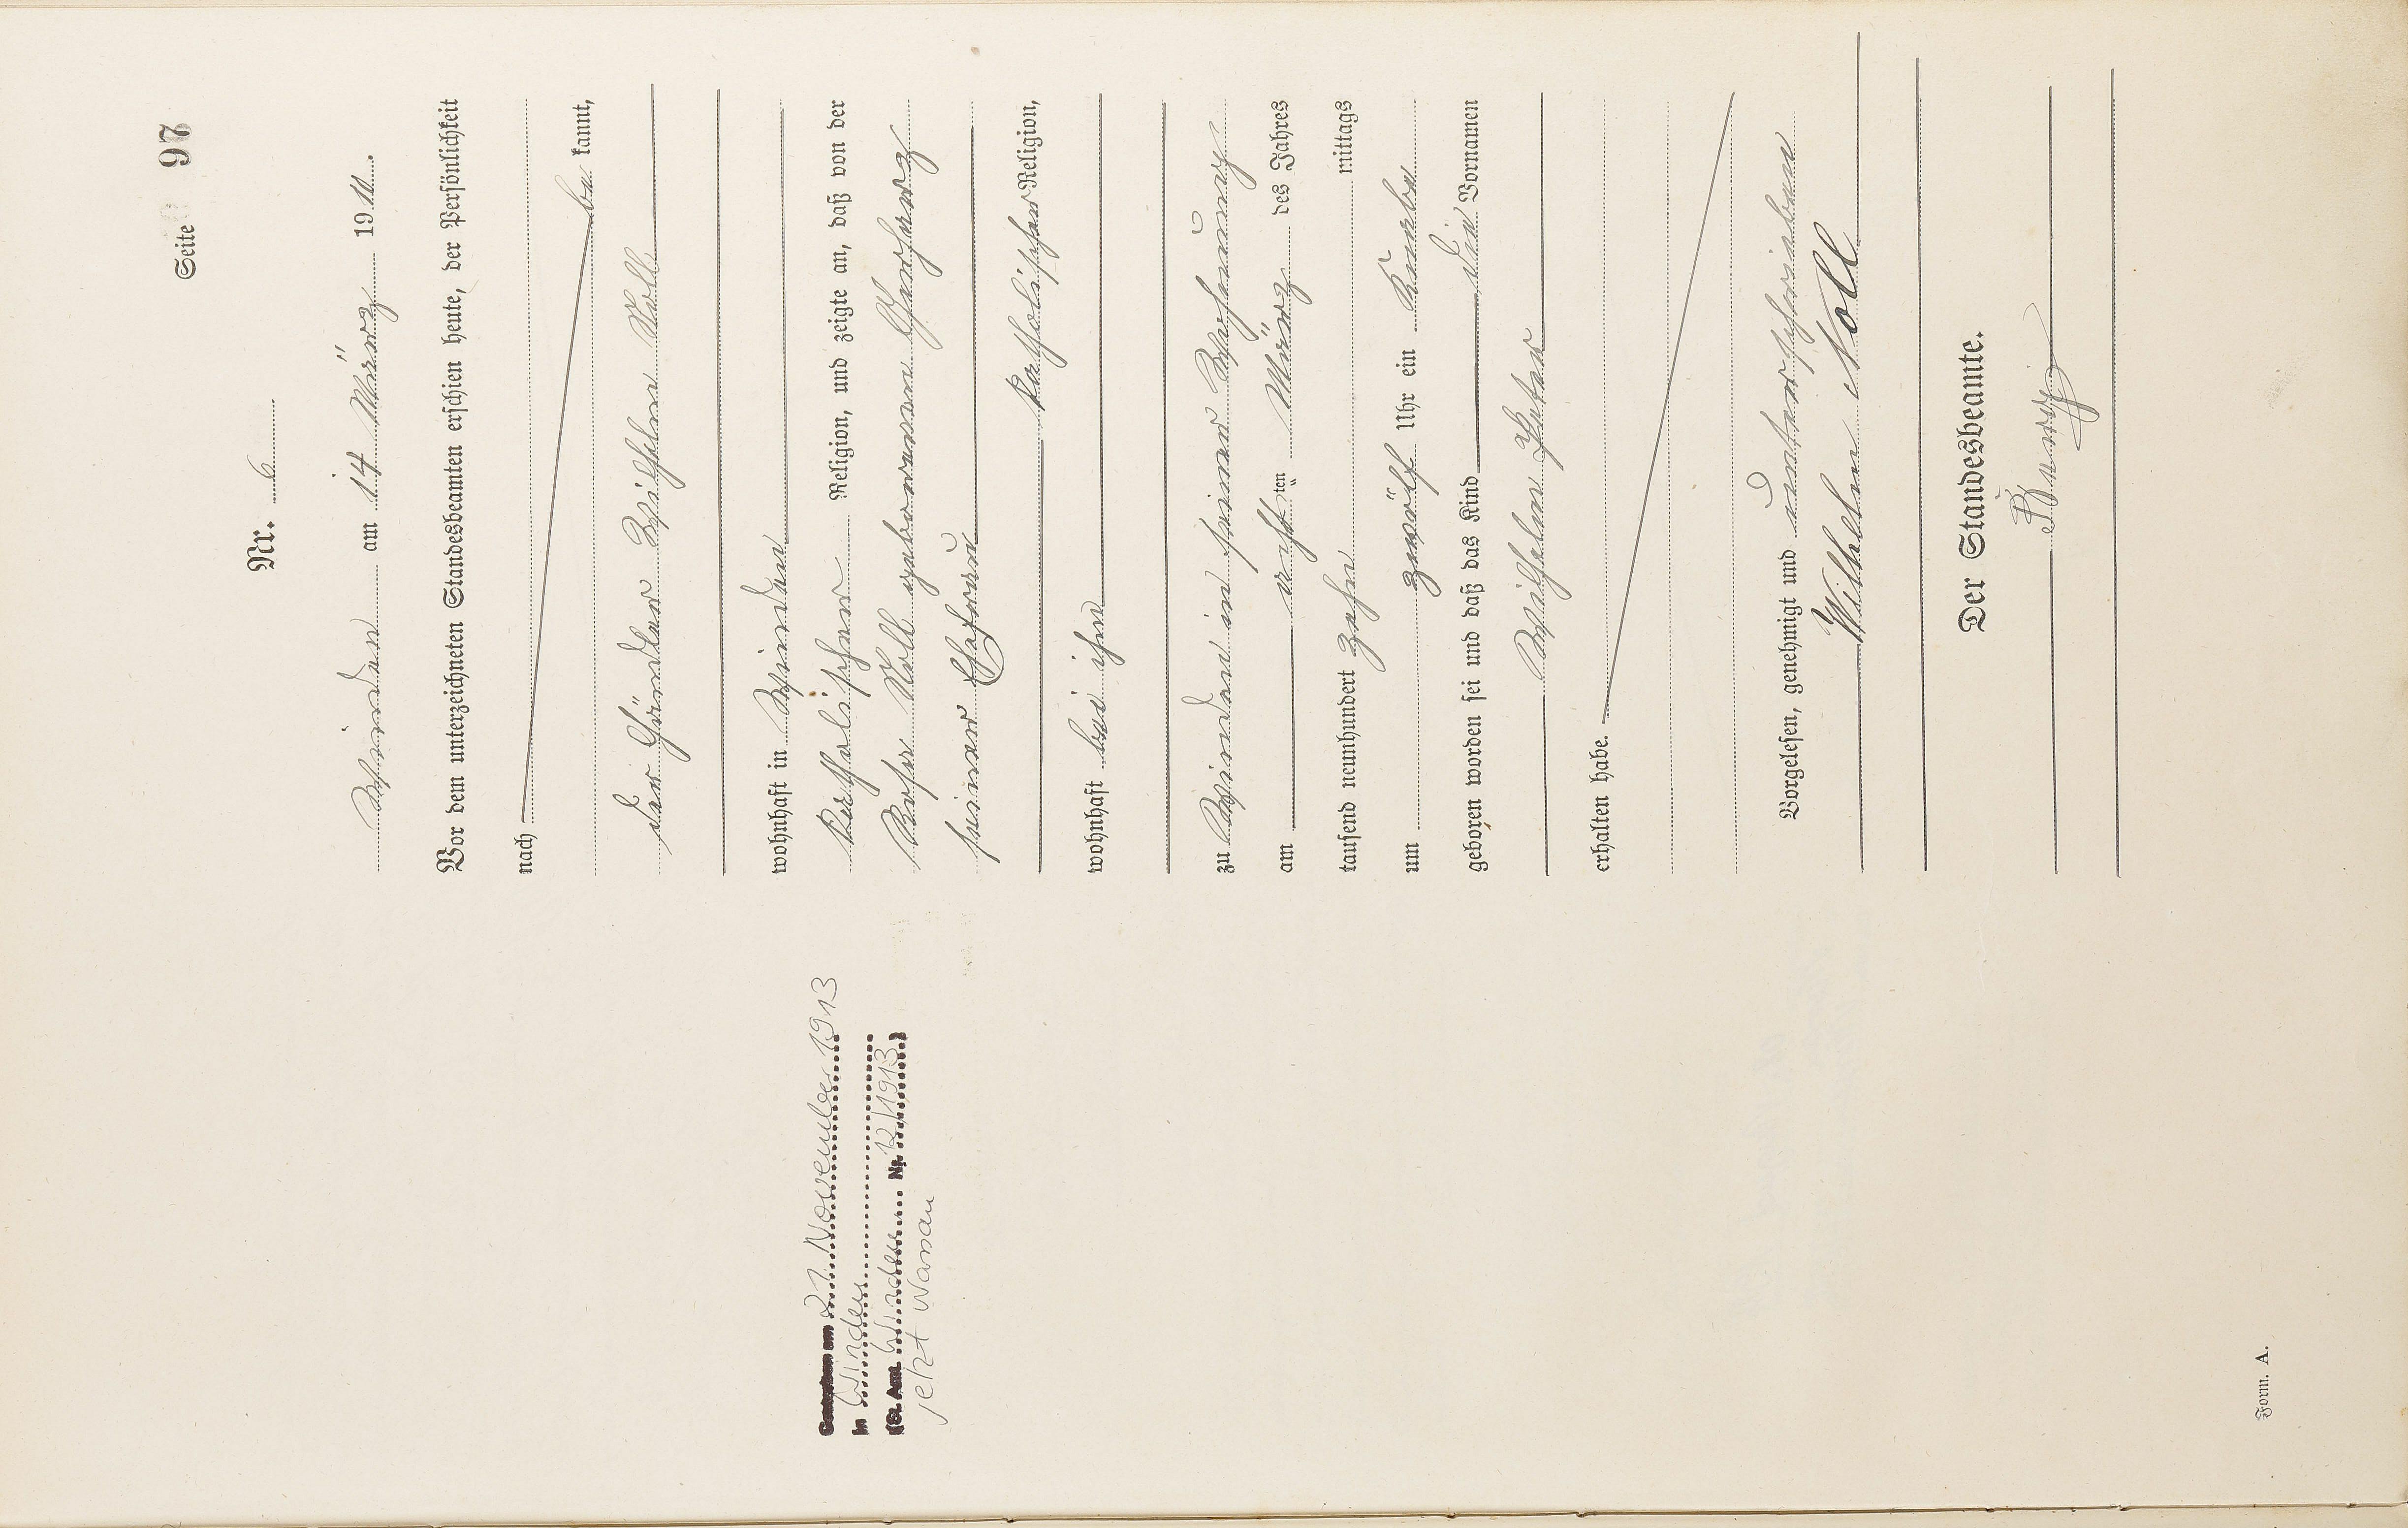 Seite 97
Nr. 6
Winden am 14 März 1910.
Vor dem unterzeichneten Standesbeamten erschien heute, der Persönlichkeit
nach
be kannt,
der Händler Wilhelm Noll
wohnhaft in Winden
katholischer Religion, und zeigte an, daß von der
Rosa Noll geborenen
seiner Ehefrau
katholischer Religion,
wohnhaft bei ihm
zu Winden in seiner Wohnung
am acht ten März des Jahres
tausend neunhundert zehn mittags
um zwölf Uhr ein Knabe
geboren worden sei und daß das Kind die Vornamen
Wilhelm Peter
erhalten habe.
Vorgelesen, genehmigt und unterschrieben
Wilhelm Noll
Der Standesbeamte.
Gestorben am 21. November 1913
in Winden
(St. Amt Winden Nr. 12/1913)
jetzt
Form. A.